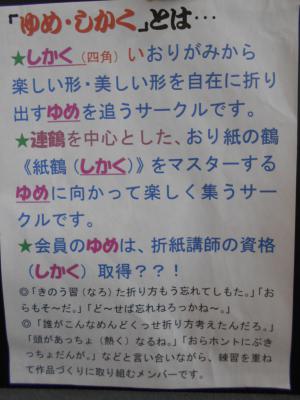 「ゆめ・しかく」とは･･･
★しかく(四角)いおりがみから
楽しい形・美しい形を自在に折り
出すゆめを追うサークルです。
★連鶴を中心とした、おり紙の鶴
《紙鶴(しかく)》をマスターする
ゆめに向かって楽しく集うサー
クルです。
★会員のゆめは、折紙講師の資格
(しかく)取得？？！
◎「きのう習(なろ)た折り方もう忘れてしもた。」「お
らもそ～だ。」「ど～せば忘れねろっかね～。」
◎「誰がこんなめんどくっせ折り方考えたんだろ。」
「頭があっちょ(熱く)なるね。」「おらホントにぶき
っちょだんが。」などと言い合いながら、練習を重ね
て作品づくりに取り組むメンバーです。